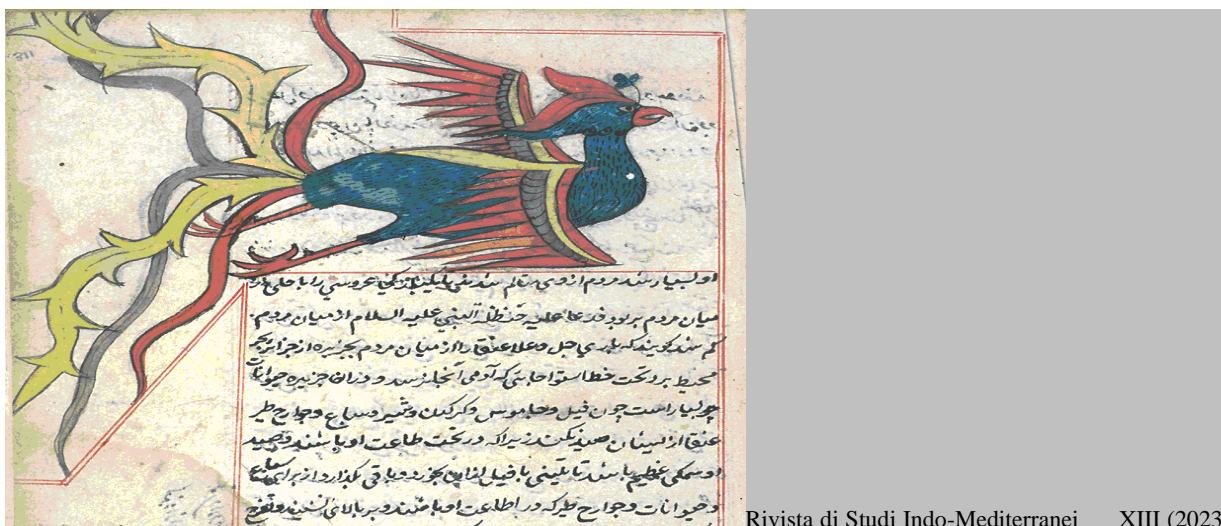 او بسیار شد مردم از وی متالم شدند عروسی را با حلی از
میان مردم بربود فدعا علیه حنظلة النبی علیه السلام از میان مردم
کم شد کویند که باری جل وعلا عنقا را از میان مردم بجزیره از جزایر بحر
محیط برد تحت خط استوا جایی که آدمی آنجا نرسد و دران جزیره حیوانات
بسیار است چون فیل وجاموس وکرکدن وشیر وسباع وجوارح طیر
عنقا از ایشان صید نکند زیراکه در تحت طاعت او باشند وصید
او سمکی عظیم باشد یا تنینی یا فیل ازین بخورد وباقی بگذارد از برای سباع
وحیوانات وجوارح طیر که در اطاعت او باشند و بر بالای نشیند وتفرج
Rivista di Studi Indo-Mediterranei XIII (2023